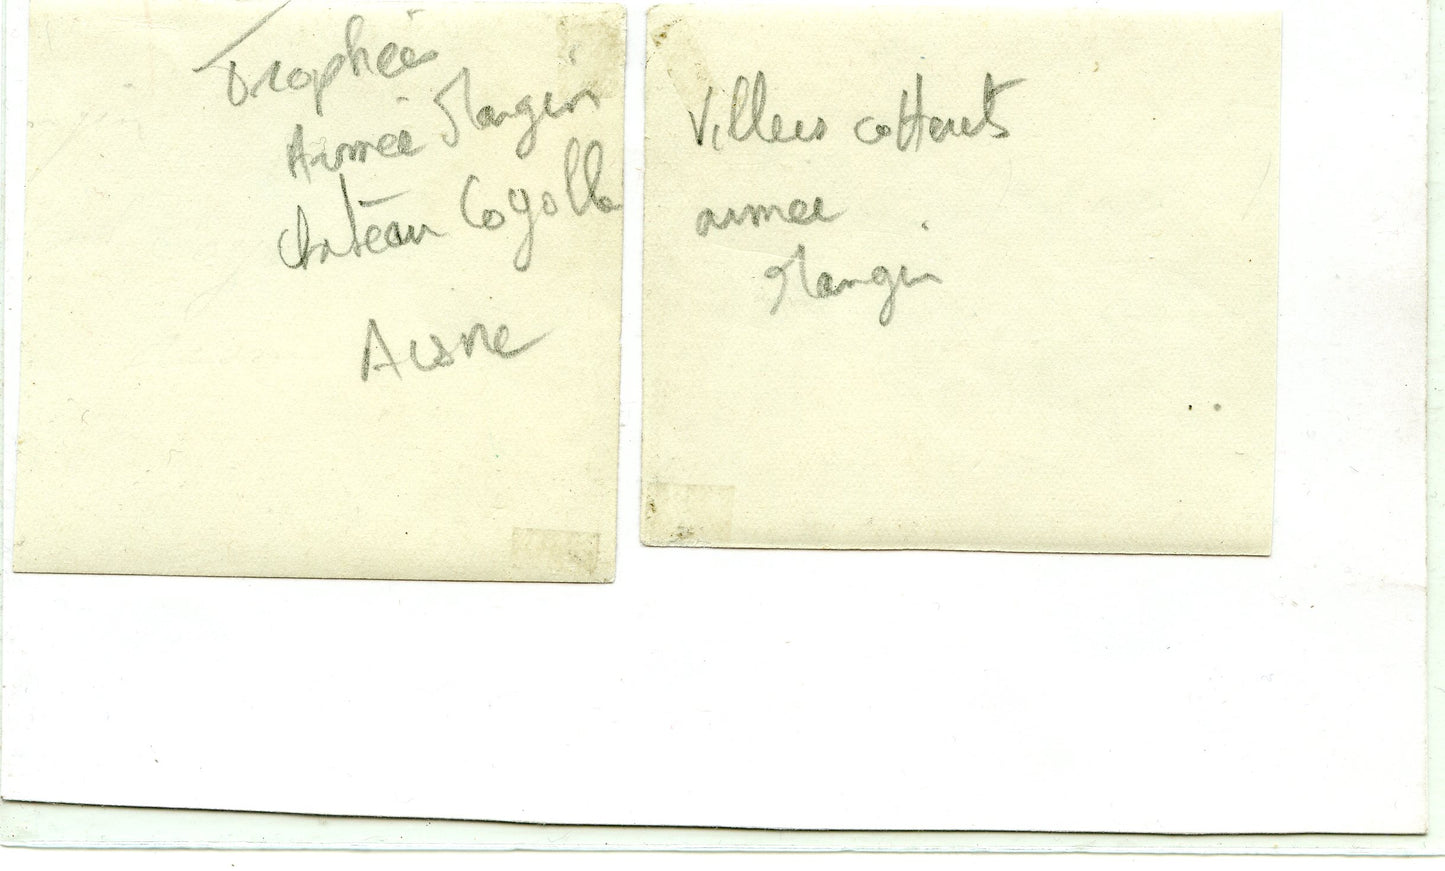 Trophées
Armée Mangin
chateau Coyolle
Aisne
Villers cotterets
armée
Mangin